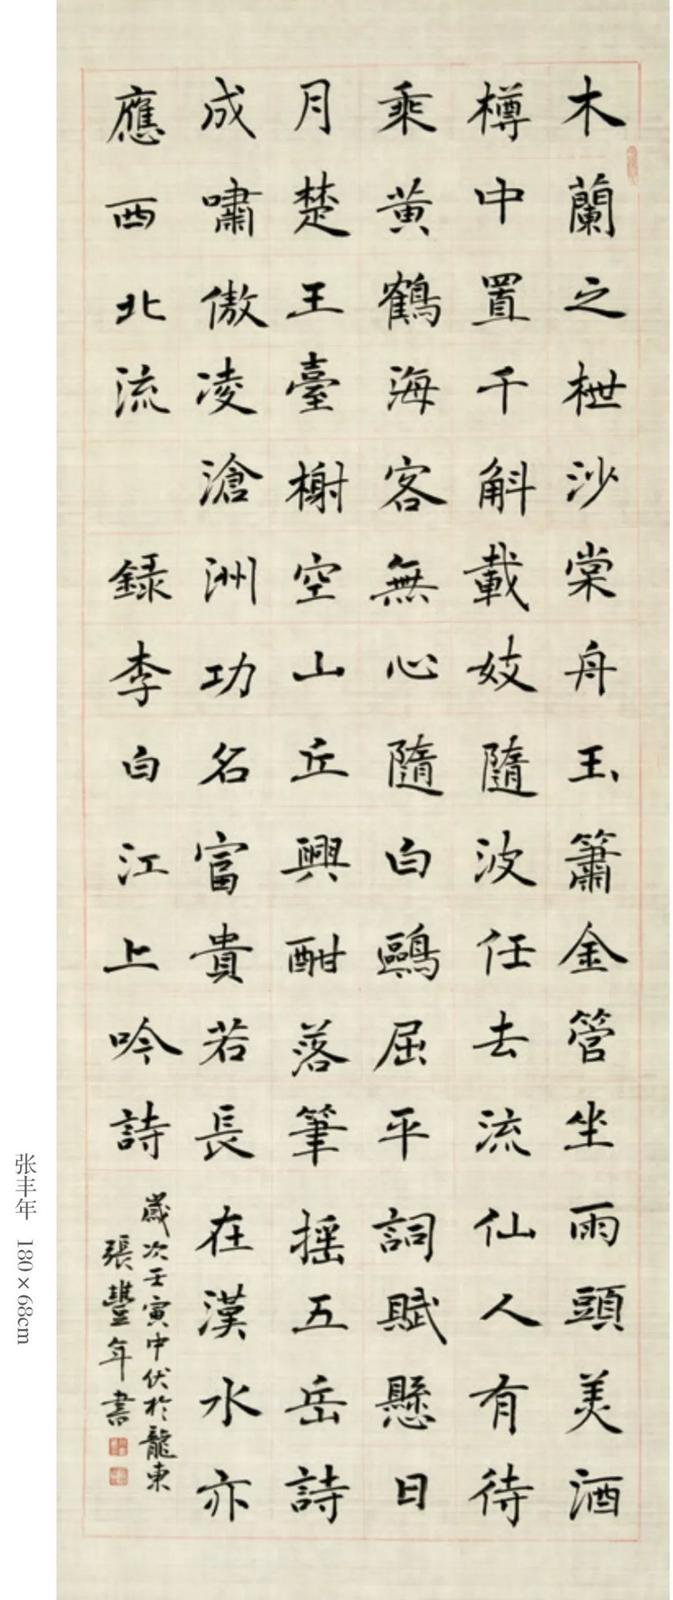 木蘭之枻沙棠舟玉簫金管坐兩頭美酒
樽中置千斛載妓隨波任去流仙人有待
乘黃鶴海客無心隨白鷗屈平詞賦懸日
月楚王臺榭空山丘興酣落筆搖五岳詩
成嘯傲凌滄洲功名富貴若長在漢水亦
應西北流 錄李白江上吟詩
歲次壬寅中伏於龍東
張豐年書
张丰年 180×68cm